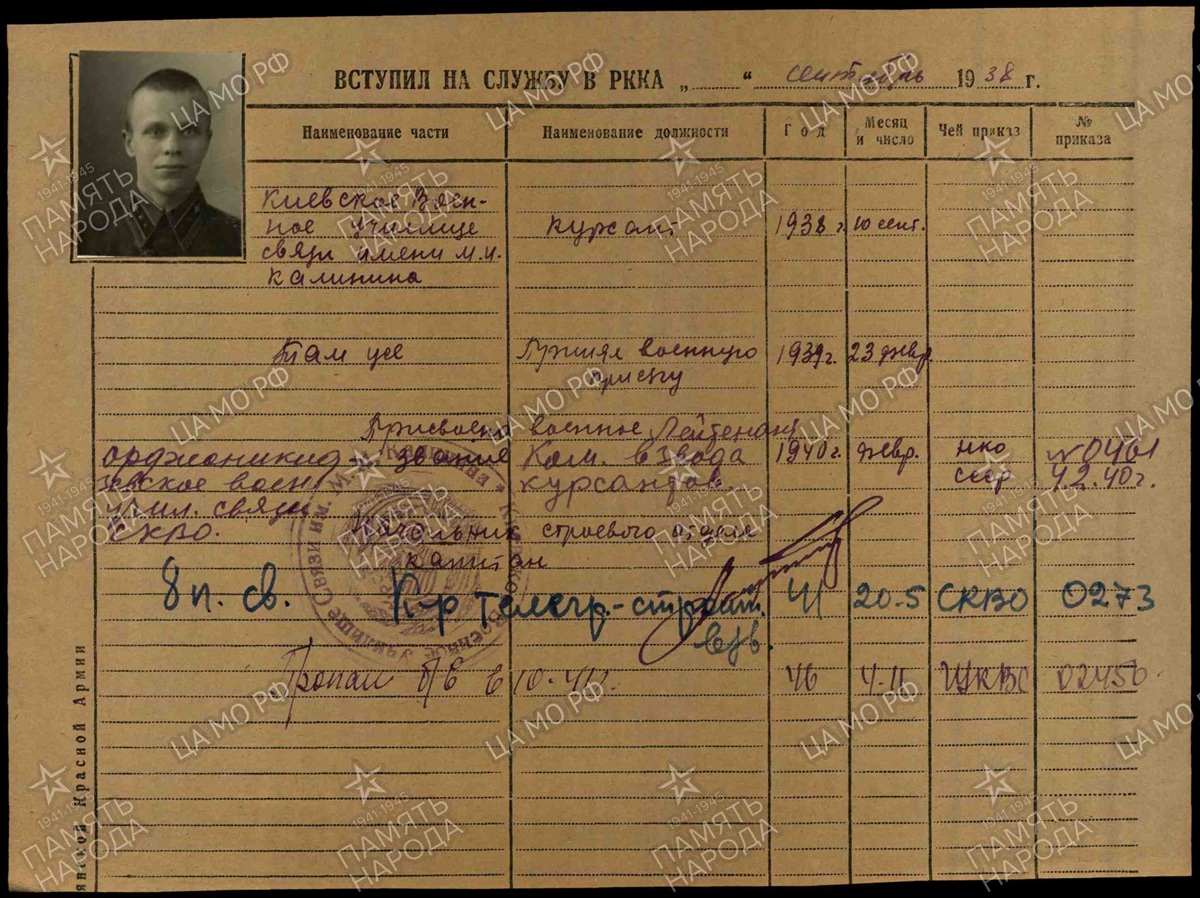 ВСТУПИЛ НА СЛУЖБУ В РККА „ “ сентябрь 1938 г.
Наименование части Наименование должности Год Месяц и число Чей приказ № приказа
Киевское Воен-
ное училище курсант 1938 г. 10 сент.
связи имени М.И.
Калинина
Там же Принял военную 1939г. 23 февр.
присягу
Присвоено военное Лейтенант
Орджоникид- звание Ком. взвода 1940г. февр. НКО №0461
зевское воен. курсантов. СССР 4.2.40г.
учил. связи
СКВО. Начальник строевого отдела
капитан
8 п. св. К-р телегр.-строит. 41 20.5 СКВО 0273
взв.
Пропал б/в в 10.41г. 46 4.11 02456
янской Красной Армии
ЦА МО РФ
1941-1945
ПАМЯТЬ
НАРОДА